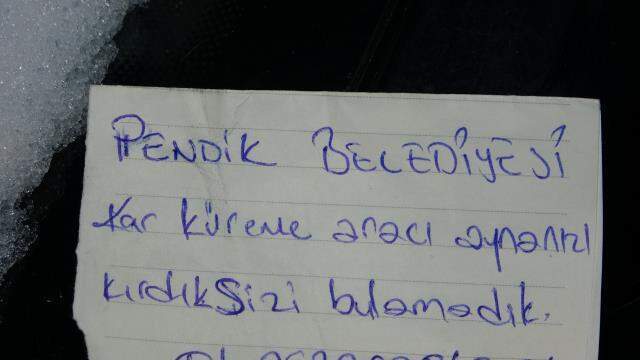 PENDİK BELEDİYESİ
Kar küreme aracı aynanızı
kırdık Sizi bulamadık.